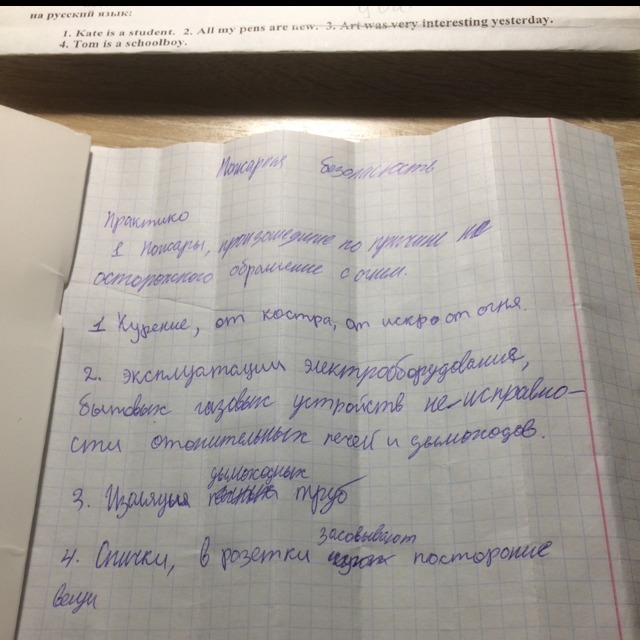 на русский язык:
1. Kate is a student. 2. All my pens are new. 3. Art was very interesting yesterday.
4. Tom is a schoolboy.
Пожарная безопасность
Практико
1 Пожары, произошедшие по причине не
осторожного обращение с огнем.
1 Курение, от костра, от искр от огня.
2. эксплуатации электрооборудования,
бытовых газовых устройств не исправно-
сти отопительных печей и дымоходов.
дымоходных
3. Изоляция труб
засовывают
4. Спички, в розетки постороние
вещи